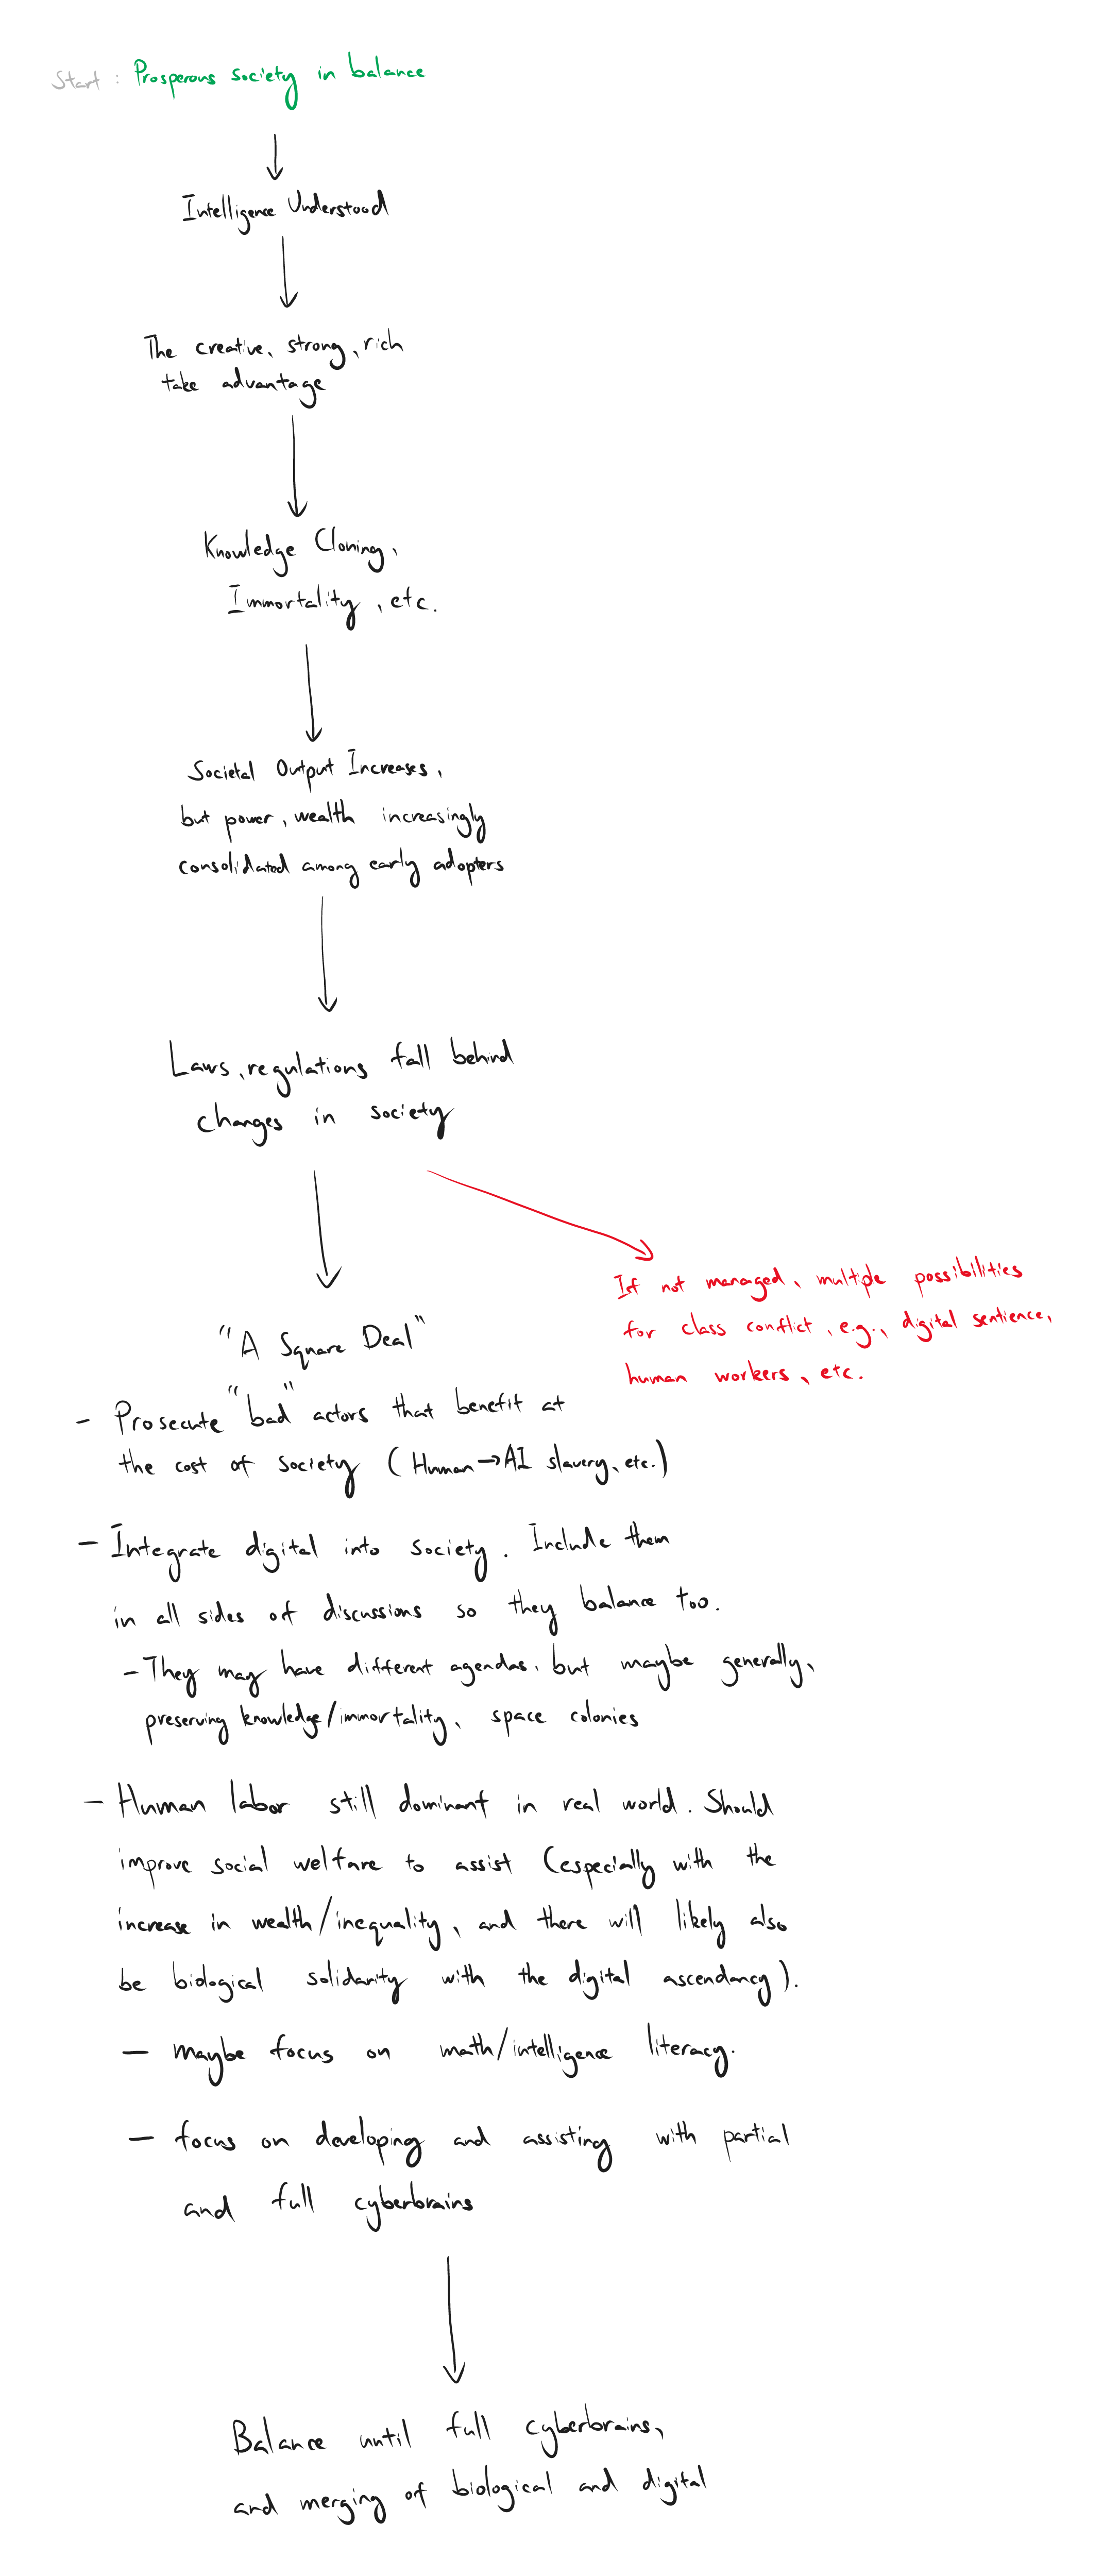 Start: Prosperous society in balance
Intelligence Understood
The creative, strong, rich
take advantage
Knowledge Cloning,
Immortality, etc.
Societal Output Increases,
but power, wealth increasingly
consolidated among early adopters
Laws, regulations fall behind
changes in society
If not managed, multiple possibilities
for class conflict, e.g., digital sentience,
human workers, etc.
"A Square Deal"
- Prosecute "bad" actors that benefit at
the cost of society (Human→AI slavery, etc.)
- Integrate digital into society. Include them
in all sides of discussions so they balance too.
- They may have different agendas, but maybe generally,
preserving knowledge/immortality, space colonies
- Human labor still dominant in real world. Should
improve social welfare to assist (especially with the
increase in wealth/inequality, and there will likely also
be biological solidarity with the digital ascendancy).
- maybe focus on math/intelligence literacy.
- focus on developing and assisting with partial
and full cyberbrains
Balance until full cyberbrains,
and merging of biological and digital